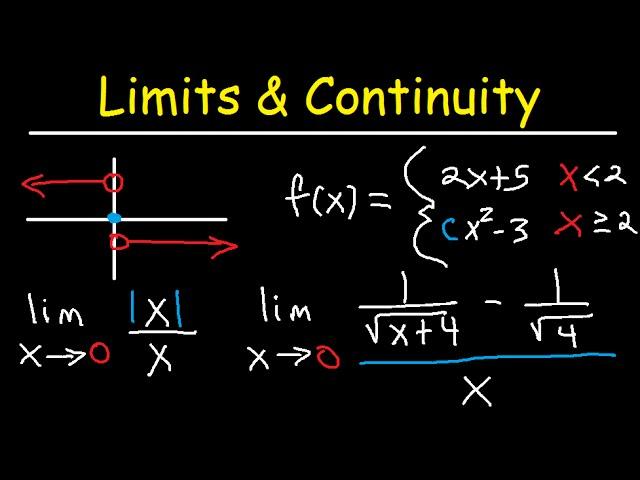 Limits & Continuity
f(x) = { 2x+5 x<2
cx²-3 x≥2
lim x→0 |x|/x
lim x→0 (1/√(x+4) - 1/√4)/x